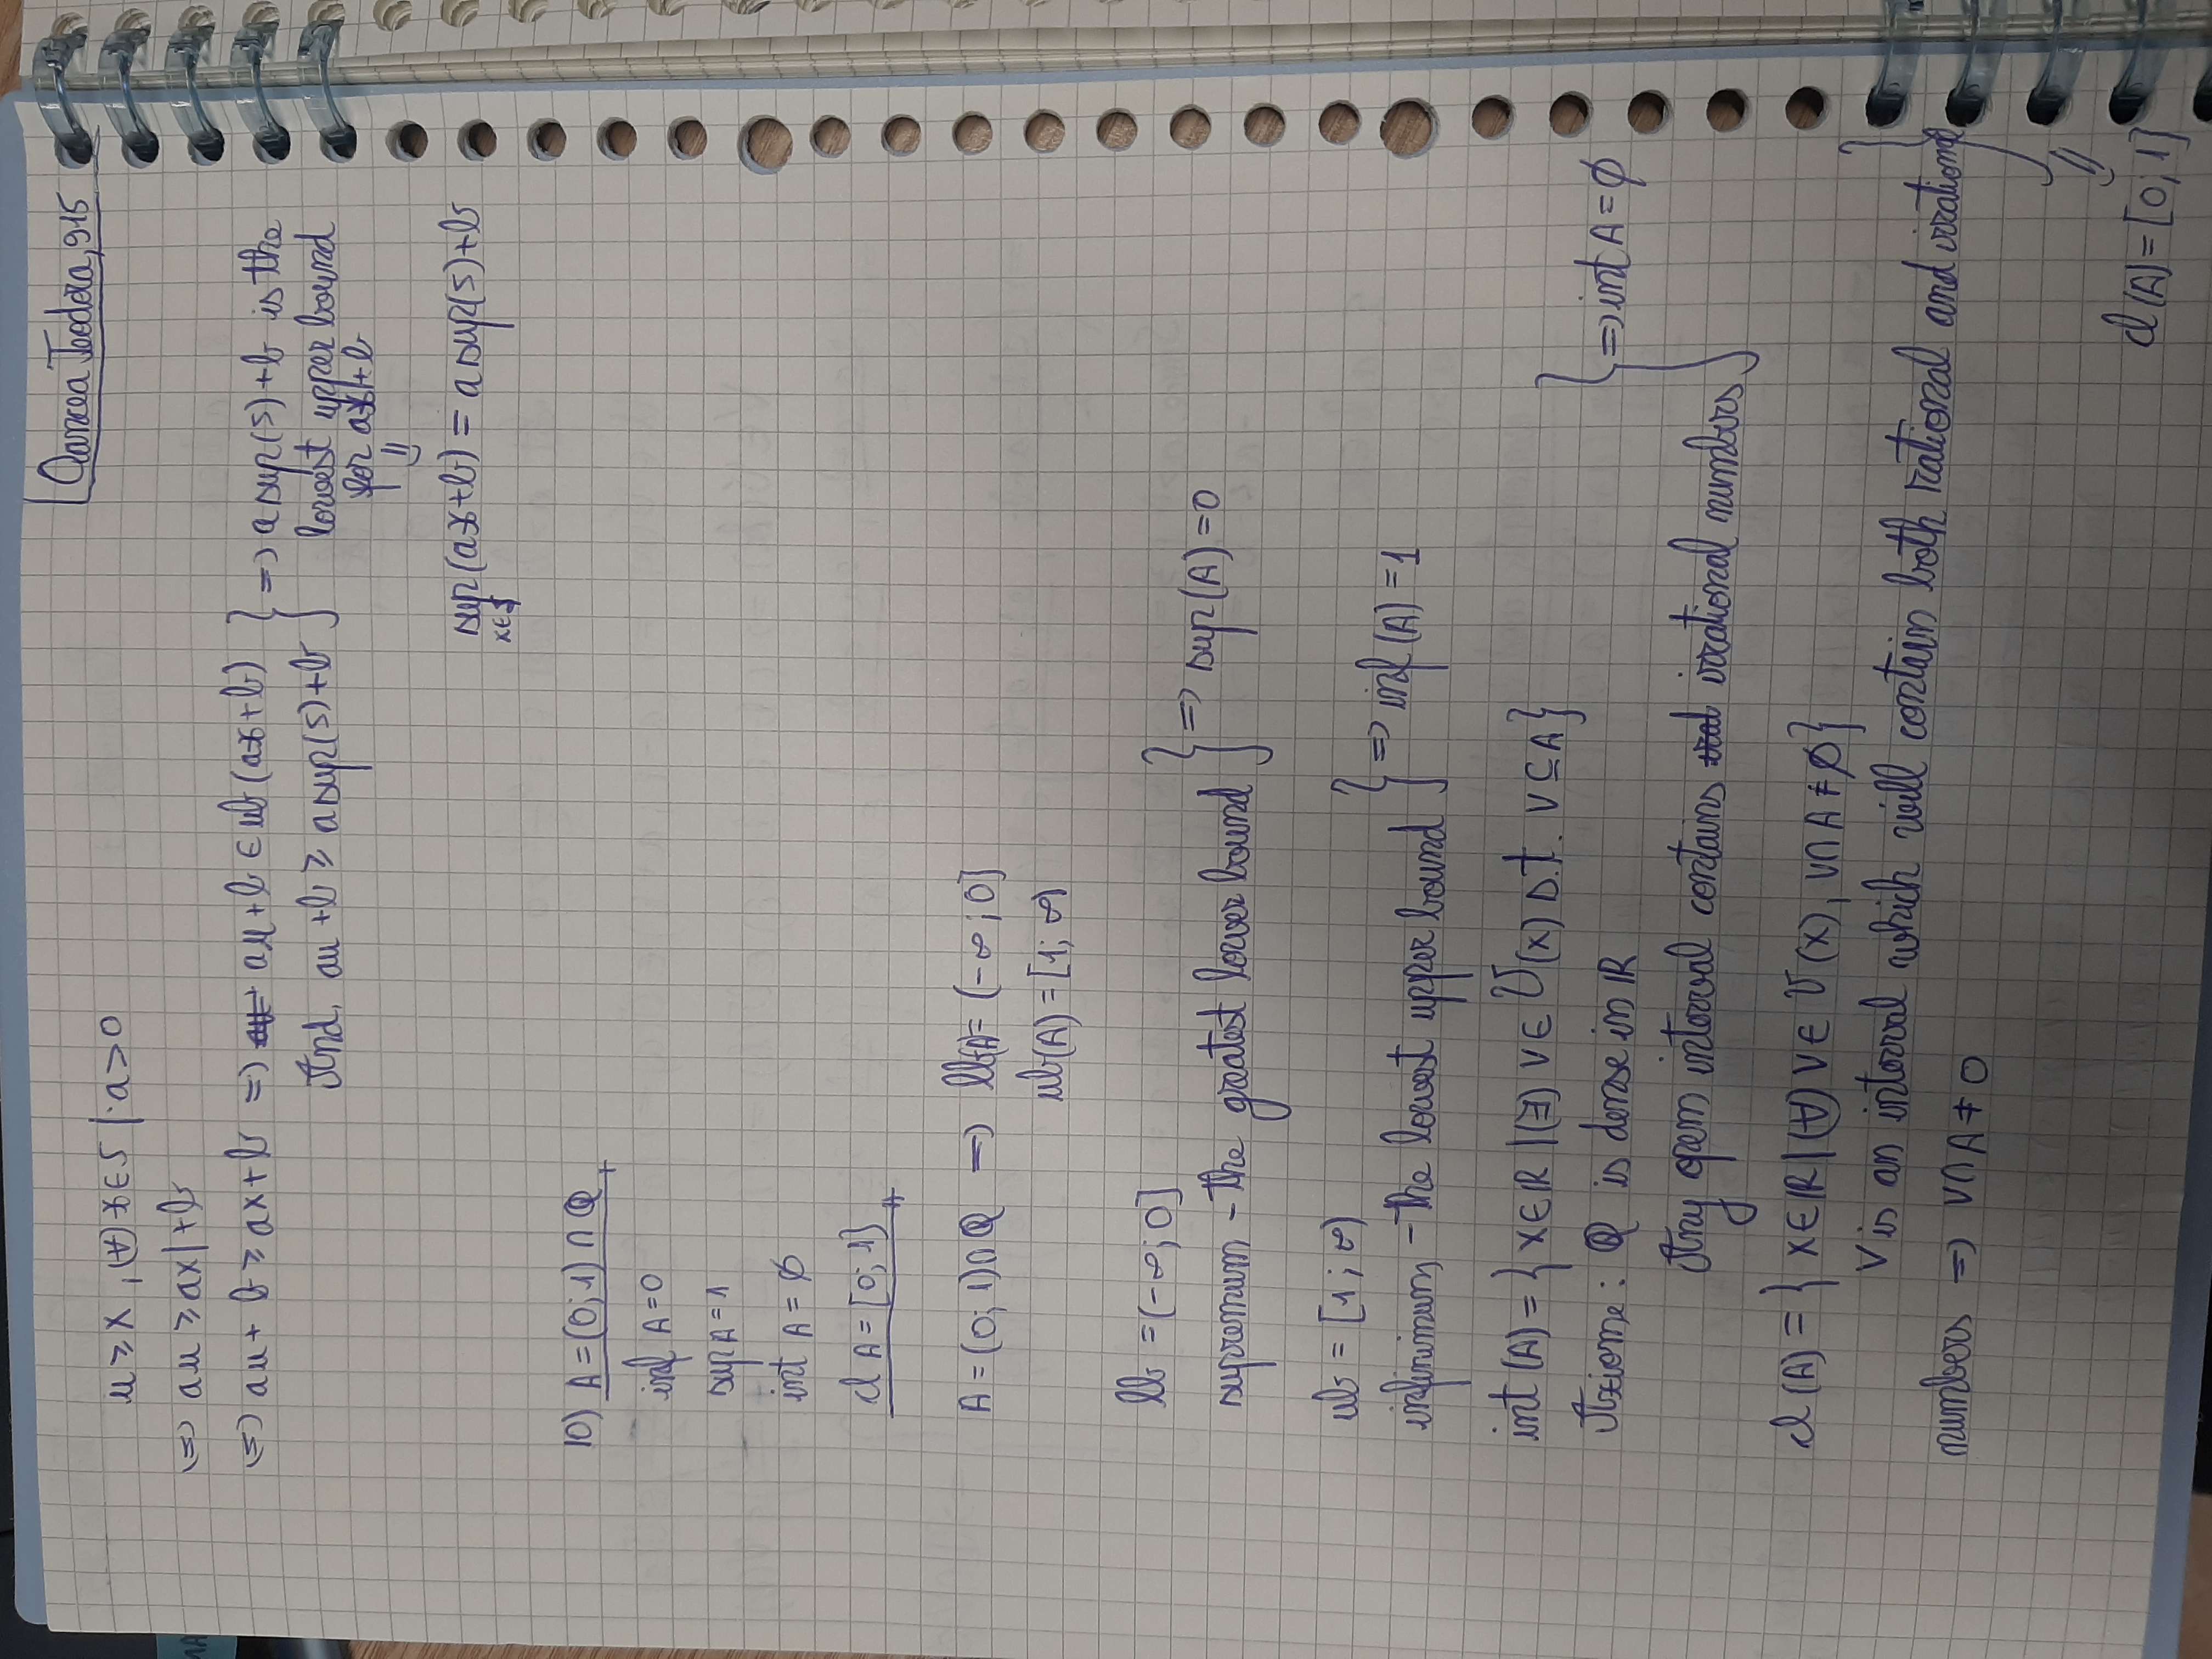 Oancea Teodora, 915
u ≥ x , (∀) x ∈ S | · a > 0
(=) au ≥ ax | + b
(=) au + b ≥ ax + b => au + b ∈ ub (ax + b)
And, au + b ≥ a sup(S) + b } => a sup(S) + b is the
lowest upper bound
for ax + b
⇓
sup (ax + b) = a sup(S) + b
x∈S
10) A = (0; 1) ∩ Q
inf A = 0
sup A = 1
int A = ∅
cl A = [0; 1]
A = (0; 1) ∩ Q => lb(A) = (-∞; 0]
ub(A) = [1; ∞)
lb = (-∞; 0]
supremum - the greatest lower bound } => sup(A) = 0
ub = [1; ∞)
infinimum - the lowest upper bound } => inf(A) = 1
int (A) = { x ∈ R | (∃) V ∈ V(x) s.t. V ⊆ A }
Axiome: Q is dense in R
Any open interval contains irrational numbers } => int A = ∅
cl (A) = { x ∈ R | (∀) V ∈ V(x), V ∩ A ≠ ∅ }
V is an interval which will contain both rational and irrational
numbers => V ∩ A ≠ 0
⇓
cl (A) = [0; 1]